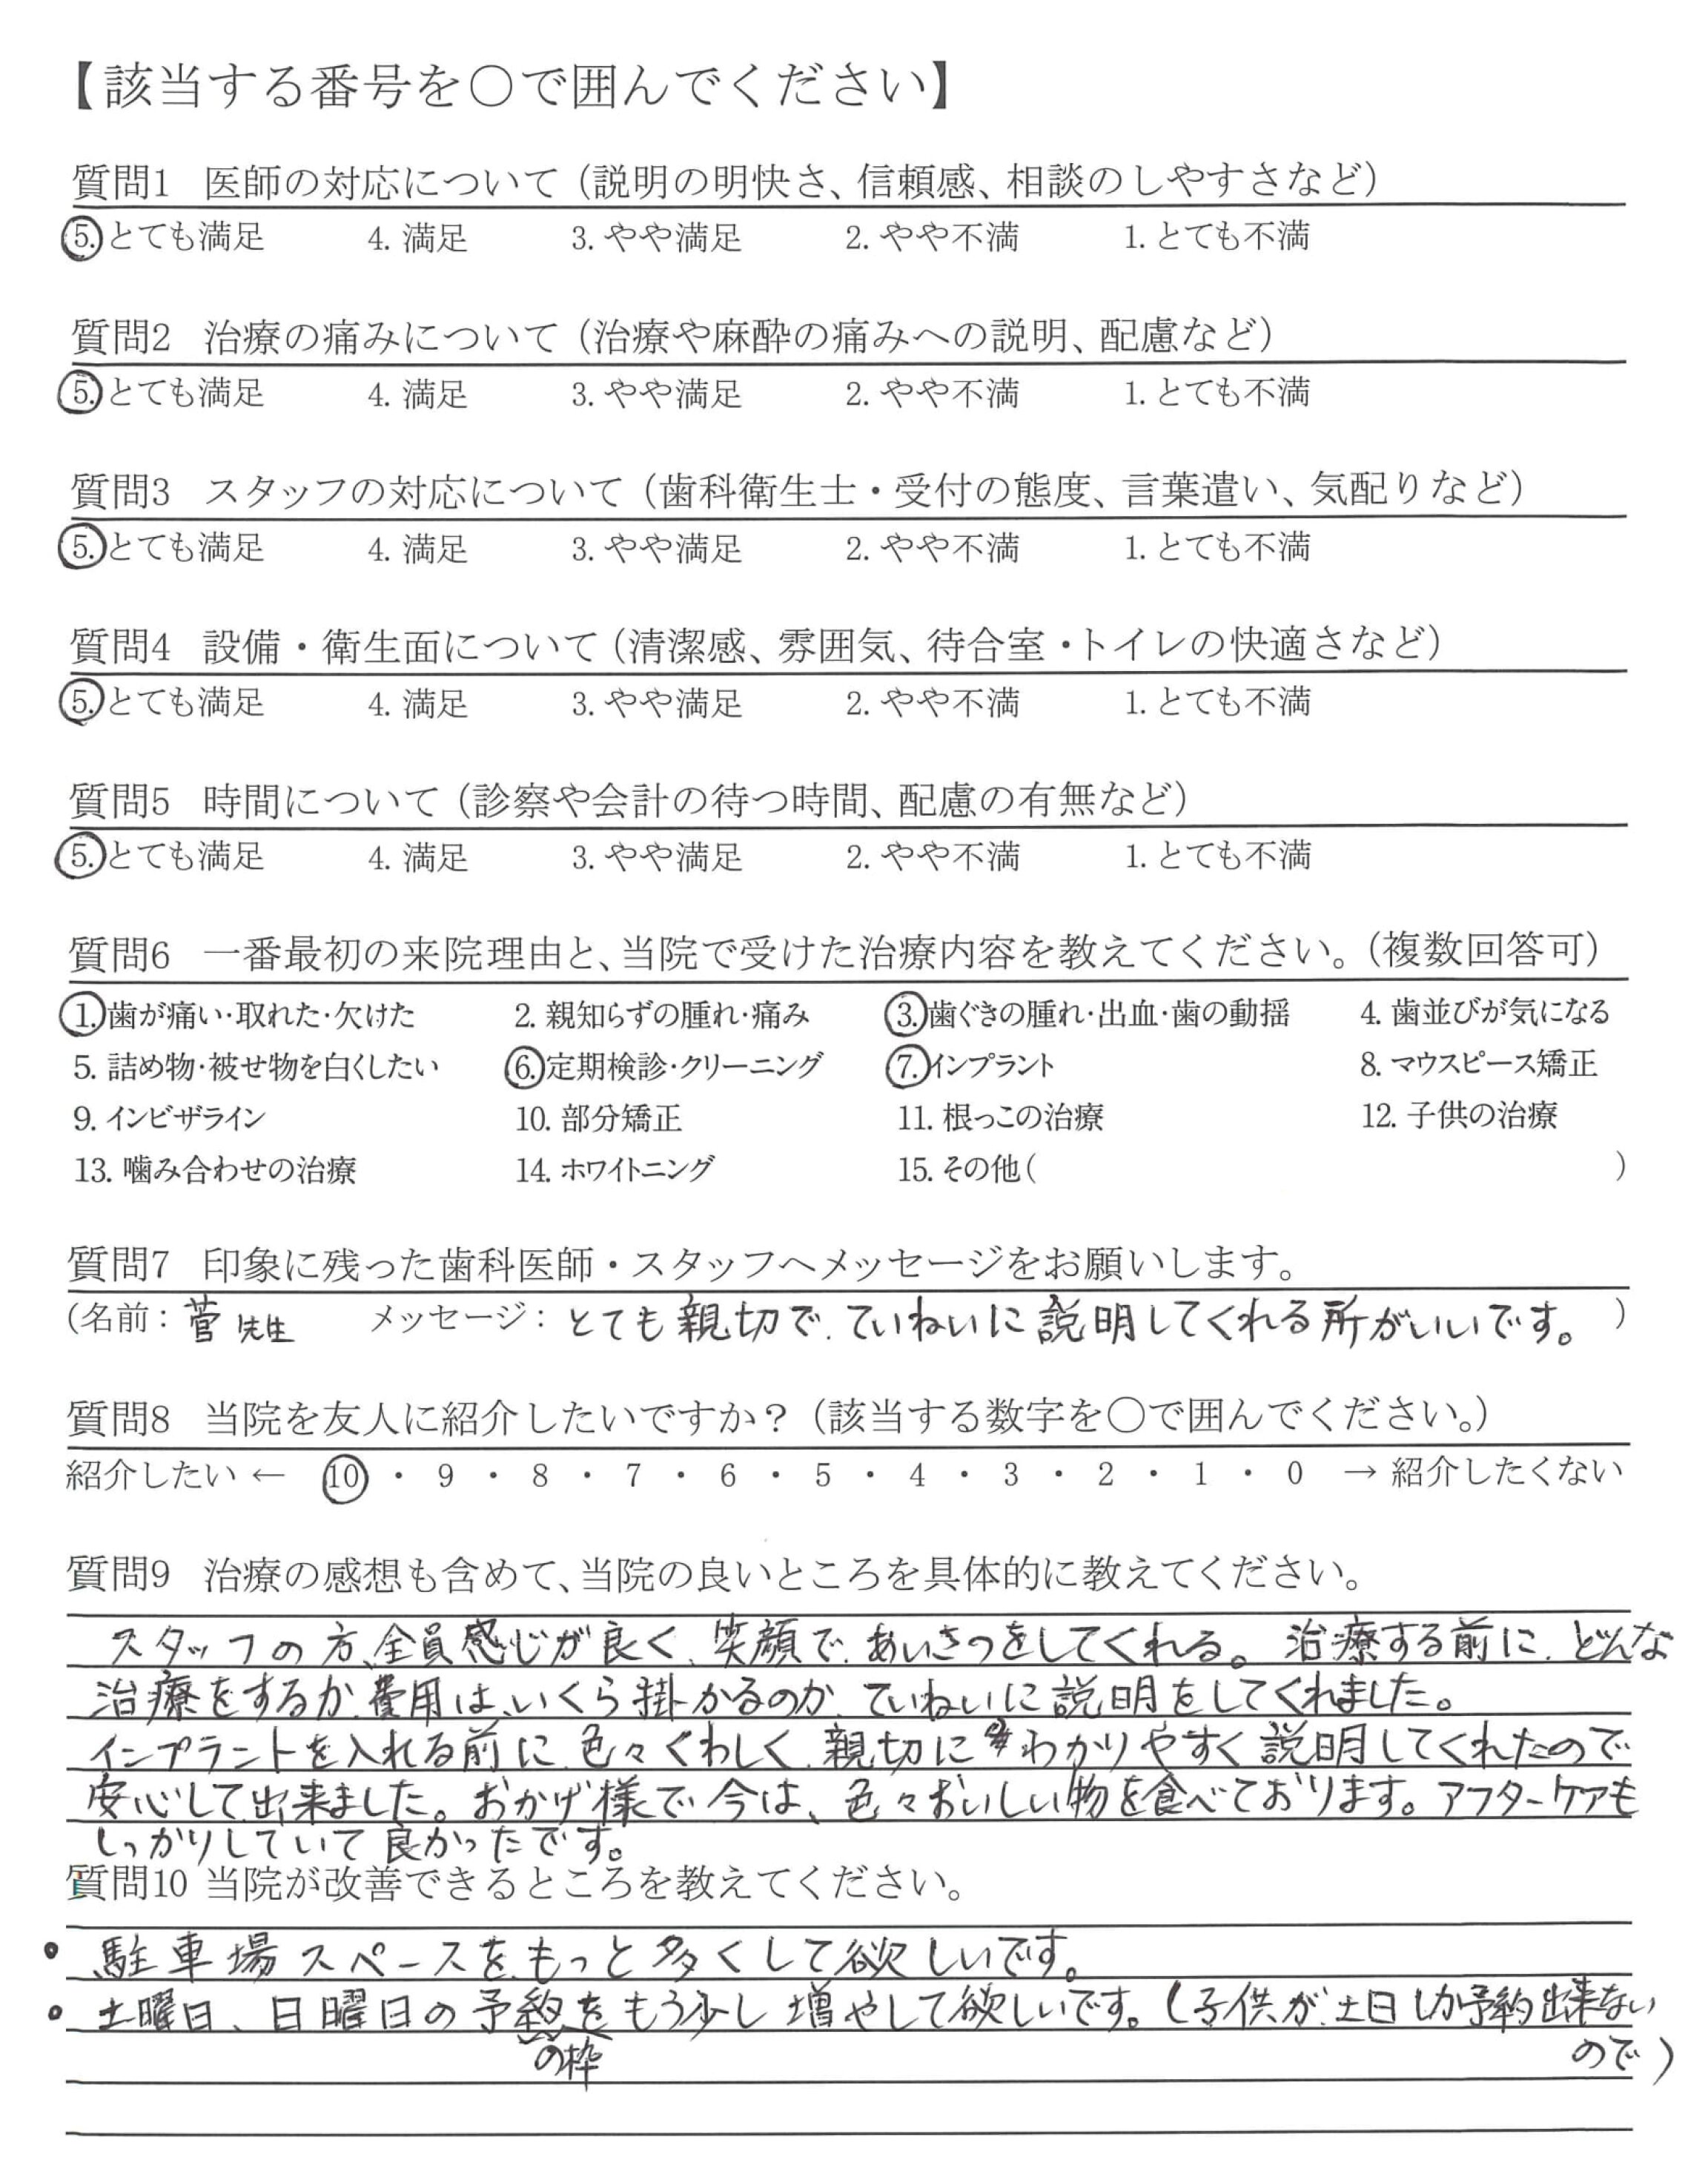 【該当する番号を○で囲んでください】
質問1 医師の対応について（説明の明快さ、信頼感、相談のしやすさなど）
5. とても満足 4. 満足 3. やや満足 2. やや不満 1. とても不満
質問2 治療の痛みについて（治療や麻酔の痛みへの説明、配慮など）
5. とても満足 4. 満足 3. やや満足 2. やや不満 1. とても不満
質問3 スタッフの対応について（歯科衛生士・受付の態度、言葉遣い、気配りなど）
5. とても満足 4. 満足 3. やや満足 2. やや不満 1. とても不満
質問4 設備・衛生面について（清潔感、雰囲気、待合室・トイレの快適さなど）
5. とても満足 4. 満足 3. やや満足 2. やや不満 1. とても不満
質問5 時間について（診察や会計の待つ時間、配慮の有無など）
5. とても満足 4. 満足 3. やや満足 2. やや不満 1. とても不満
質問6 一番最初の来院理由と、当院で受けた治療内容を教えてください。（複数回答可）
1. 歯が痛い・取れた・欠けた 2. 親知らずの腫れ・痛み 3. 歯ぐきの腫れ・出血・歯の動揺 4. 歯並びが気になる
5. 詰め物・被せ物を白くしたい 6. 定期検診・クリーニング 7. インプラント 8. マウスピース矯正
9. インビザライン 10. 部分矯正 11. 根っこの治療 12. 子供の治療
13. 噛み合わせの治療 14. ホワイトニング 15. その他（ ）
質問7 印象に残った歯科医師・スタッフへメッセージをお願いします。
（名前：菅先生 メッセージ：とても親切で、ていねいに説明してくれる所がいいです。）
質問8 当院を友人に紹介したいですか？（該当する数字を○で囲んでください。）
紹介したい ← 10 ・ 9 ・ 8 ・ 7 ・ 6 ・ 5 ・ 4 ・ 3 ・ 2 ・ 1 ・ 0 → 紹介したくない
質問9 治療の感想も含めて、当院の良いところを具体的に教えてください。
スタッフの方、全員感じが良く、笑顔で、あいさつをしてくれる。治療する前に、どんな
治療をするか、費用は、いくら掛かるのか、ていねいに説明をしてくれました。
インプラントを入れる前に、色々くわしく、親切にわかりやすく説明してくれたので
安心して出来ました。おかげ様で、今は、色々おいしい物を食べております。アフターケアも
しっかりしていて良かったです。
質問10 当院が改善できるところを教えてください。
・駐車場スペースを、もっと多くして欲しいです。
・土曜日、日曜日の予約をもう少し増やして欲しいです。（子供が、土日しか予約出来ない
の枠 ので）